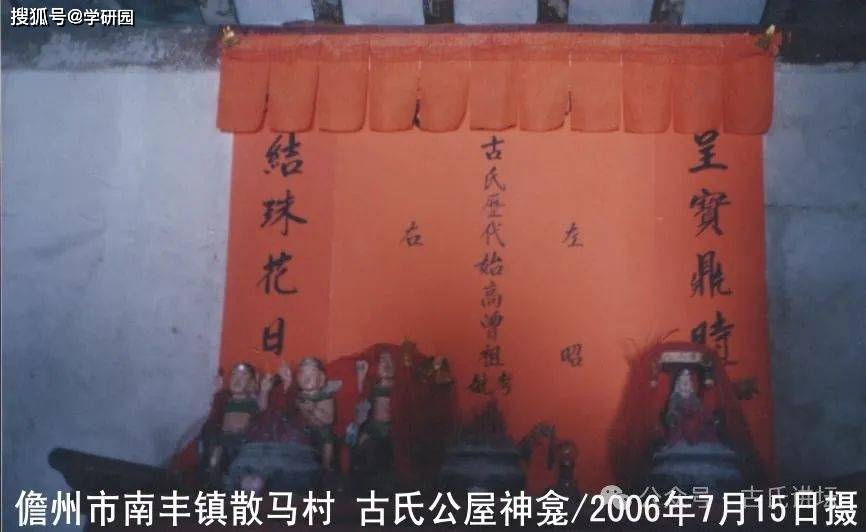 搜狐号@学研园
呈寶鼎時
左昭
古氏歷代始高曾祖考妣
右
結珠花日
公众号 · 古氏讲坛
儋州市南丰镇散马村 古氏公屋神龛/2006年7月15日摄